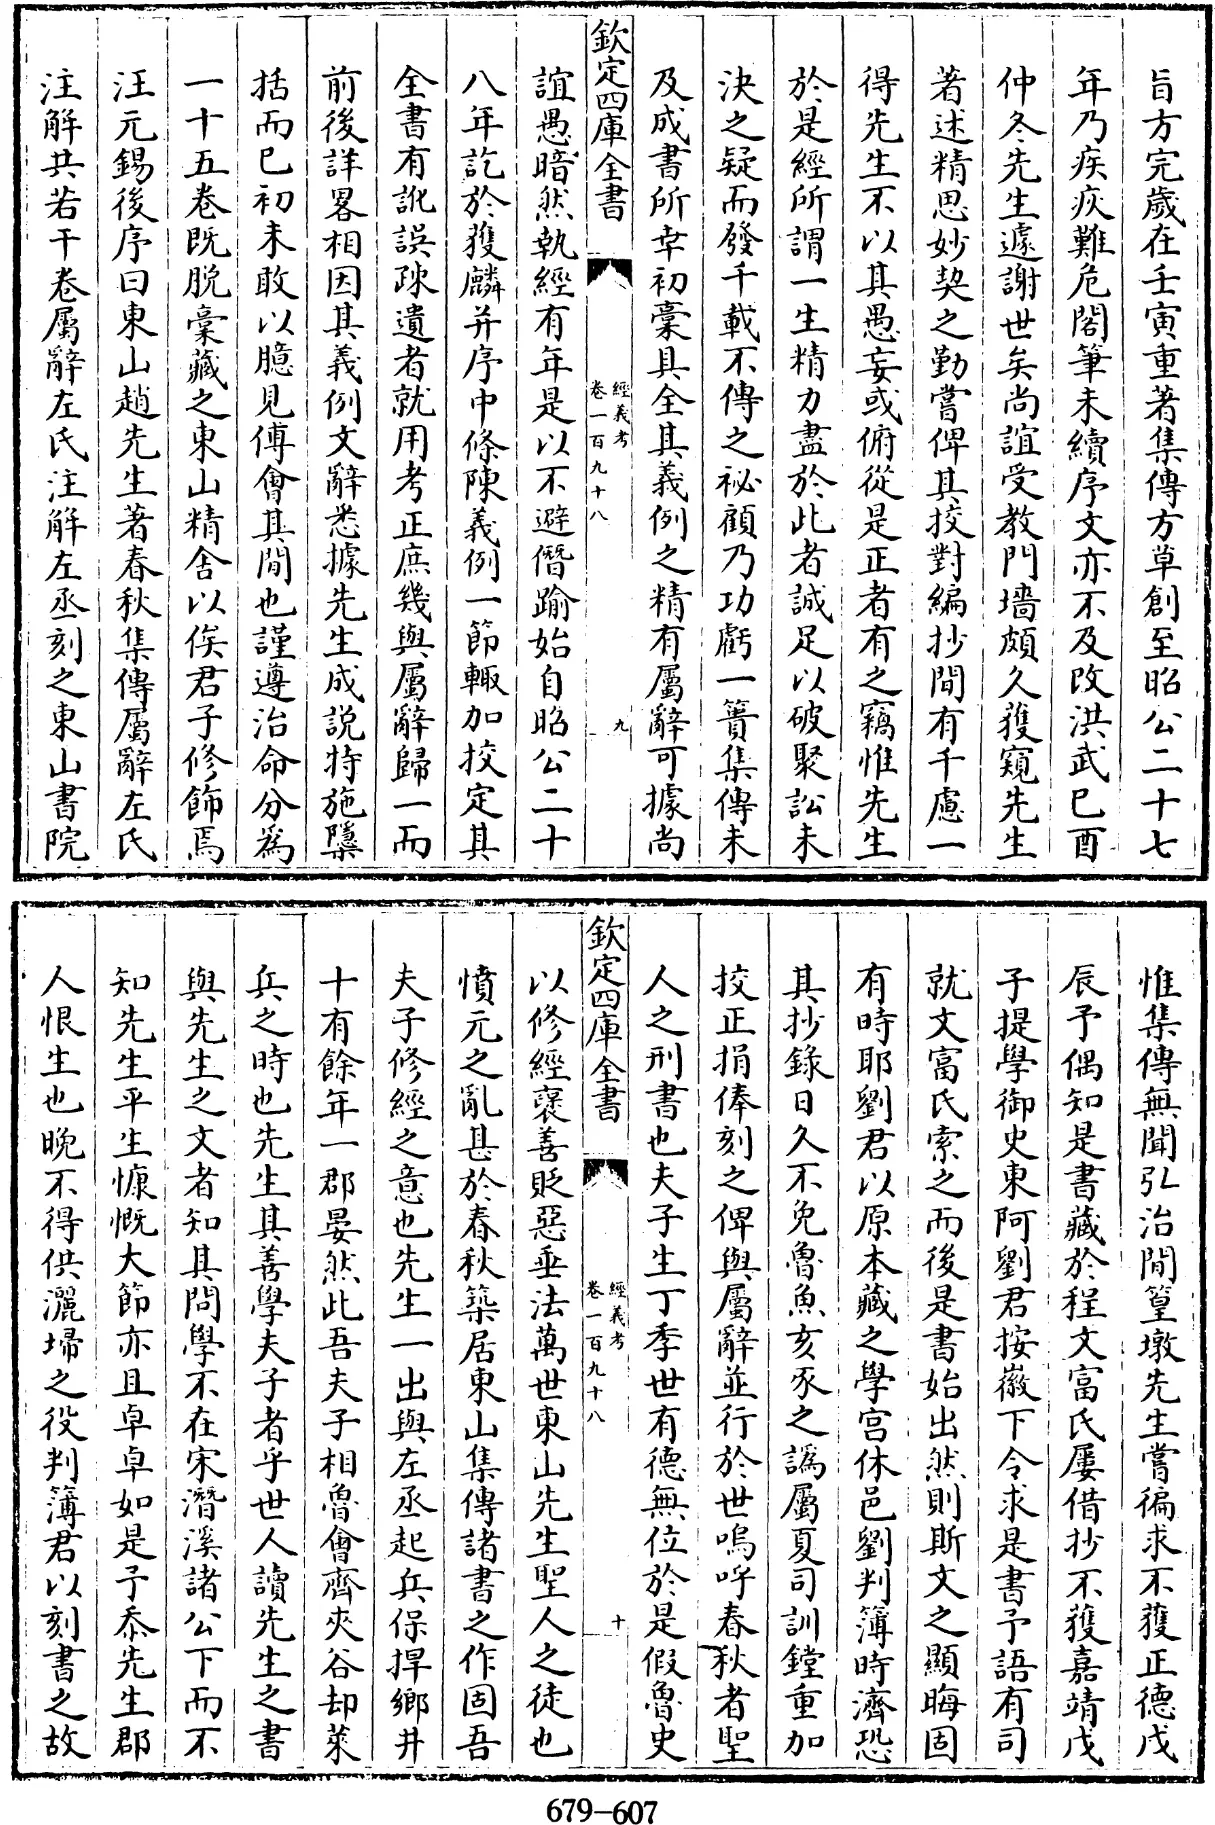 旨方完歲在壬寅重著集傳方草創至昭公二十七
年乃疾疢難危閣筆未續序文亦不及改洪武己酉
仲冬先生遽謝世矣尚誼受教門墻頗久獲窺先生
著述精思妙契之勤嘗俾其挍對編抄間有千慮一
得先生不以其愚妄或俯從是正者有之竊惟先生
於是經所謂一生精力盡於此者誠足以破聚訟未
決之疑而發千載不傳之祕顧乃功虧一簣集傳未
及成書所幸初稾具全其義例之精有屬辭可據尚
欽定四庫全書
經義考
卷一百九十八
九
誼愚暗然執經有年是以不避僭踰始自昭公二十
八年訖於獲麟并序中條陳義例一節輙加挍定其
全書有訛誤踈遺者就用考正庶幾與屬辭歸一而
前後詳畧相因其義例文辭悉據先生成説特施隱
括而已初未敢以臆見傅會其間也謹遵治命分為
一十五卷既脫稾藏之東山精舍以俟君子修飾焉
汪元錫後序曰東山趙先生著春秋集傳屬辭左氏
注解共若干卷屬辭左氏注解左丞刻之東山書院
惟集傳無聞弘治間篁墩先生嘗徧求不獲正德戊
辰予偶知是書藏於程文富氏屢借抄不獲嘉靖戊
子提學御史東阿劉君按徽下令求是書予語有司
就文富氏索之而後是書始出然則斯文之顯晦固
有時耶劉君以原本藏之學宫休邑劉判簿時濟恐
其抄錄日久不免魯魚亥豕之譌屬夏司訓鏜重加
挍正捐俸刻之俾與屬辭並行於世嗚呼春秋者聖
人之刑書也夫子生丁季世有德無位於是假魯史
欽定四庫全書
經義考
卷一百九十八
十
以修經襃善貶惡垂法萬世東山先生聖人之徒也
憤元之亂甚於春秋築居東山集傳諸書之作固吾
夫子修經之意也先生一出與左丞起兵保捍鄉井
十有餘年一郡晏然此吾夫子相魯會齊夾谷却萊
兵之時也先生其善學夫子者乎世人讀先生之書
與先生之文者知其問學不在宋潛溪諸公下而不
知先生平生慷慨大節亦且卓卓如是予忝先生郡
人恨生也晚不得供灑埽之役判簿君以刻書之故
679-607